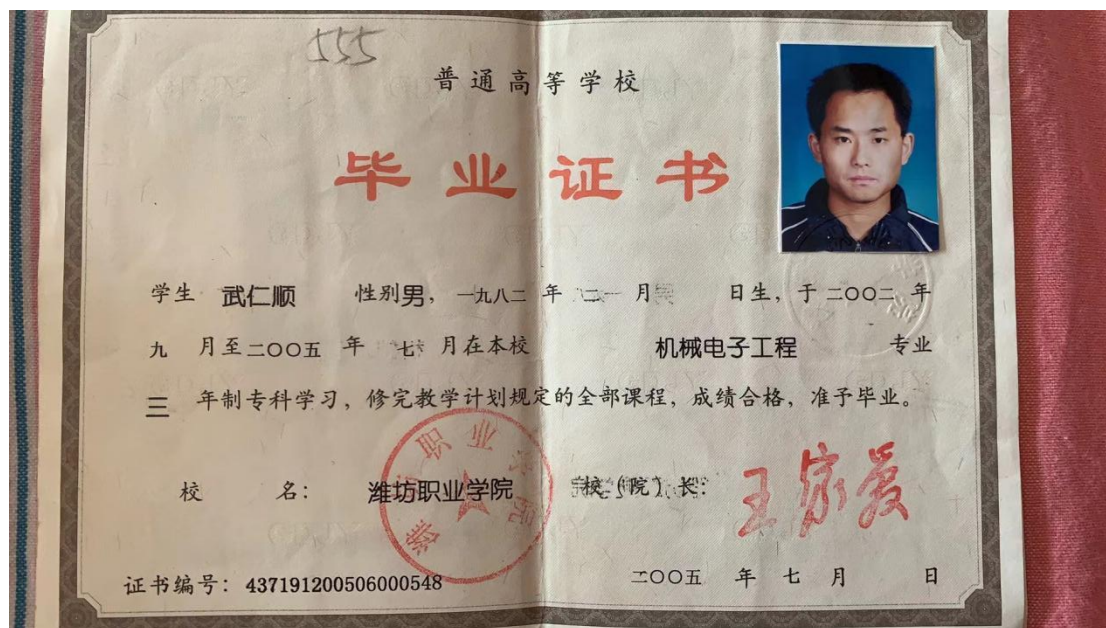 555
普通高等学校
毕业证书
学生 武仁顺 性别男，一九八二 年 二 月 日生，于二〇〇二 年
九 月至二〇〇五 年 七 月在本校 机械电子工程 专业
三 年制专科学习，修完教学计划规定的全部课程，成绩合格，准予毕业。
校 名： 潍坊职业学院 校（院）长： 王家爱
潍坊职业学院
证书编号：437191200506000548 二〇〇五 年 七 月 日